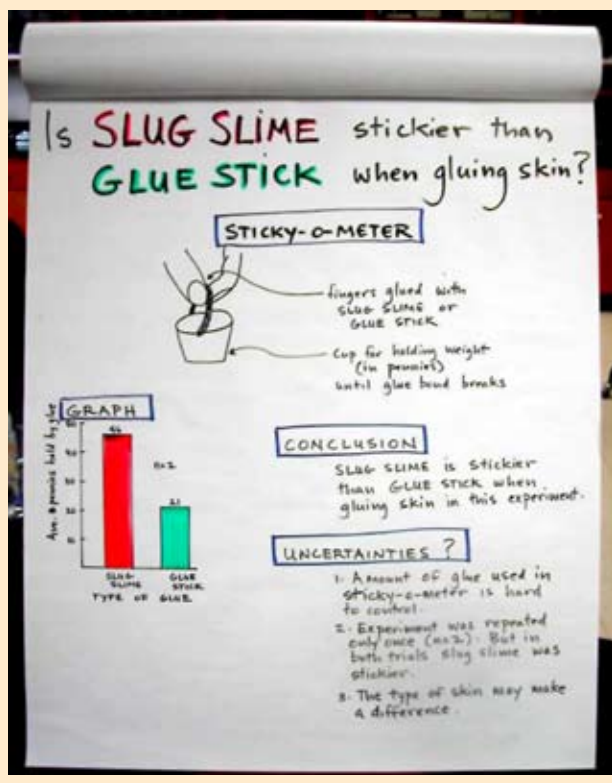 Is SLUG SLIME stickier than
GLUE STICK when gluing skin?
STICKY-O-METER
fingers glued with
SLUG SLIME OR
GLUE STICK
Cup for holding weight
(in pennies)
until glue bond breaks
GRAPH
Ave. # pennies held by glue
n=2
21
SLUG SLIME
GLUE STICK
TYPE OF GLUE
CONCLUSION
SLUG SLIME is stickier
than GLUE STICK when
gluing skin in this experiment.
UNCERTAINTIES ?
1. Amount of glue used in
sticky-o-meter is hard
to control.
2. Experiment was repeated
only once (n=2). But in
both trials slug slime was
stickier.
3. The type of skin may make
a difference.